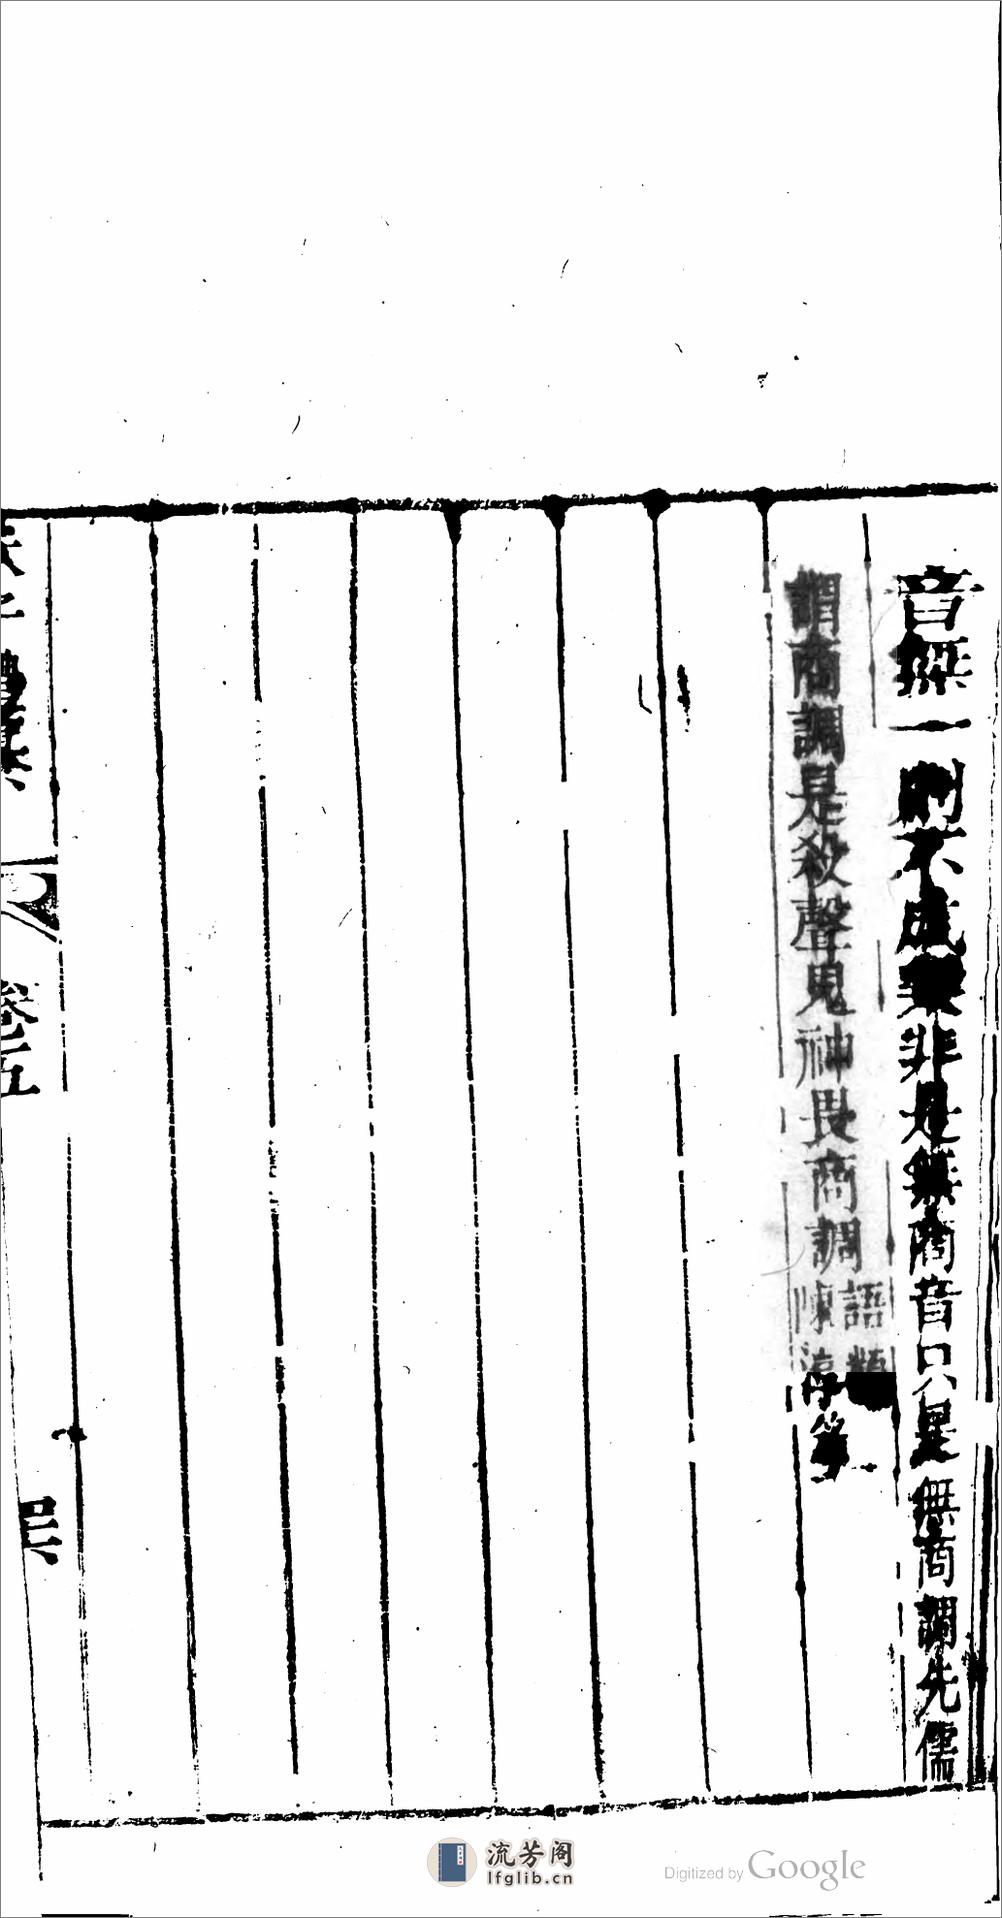 音無一則不成樂非是無商音只是無商調先儒
謂商調是殺聲鬼神畏商調
語類
陳淳錄
卷五
流芳阁
lfglib.cn
Digitized by Google